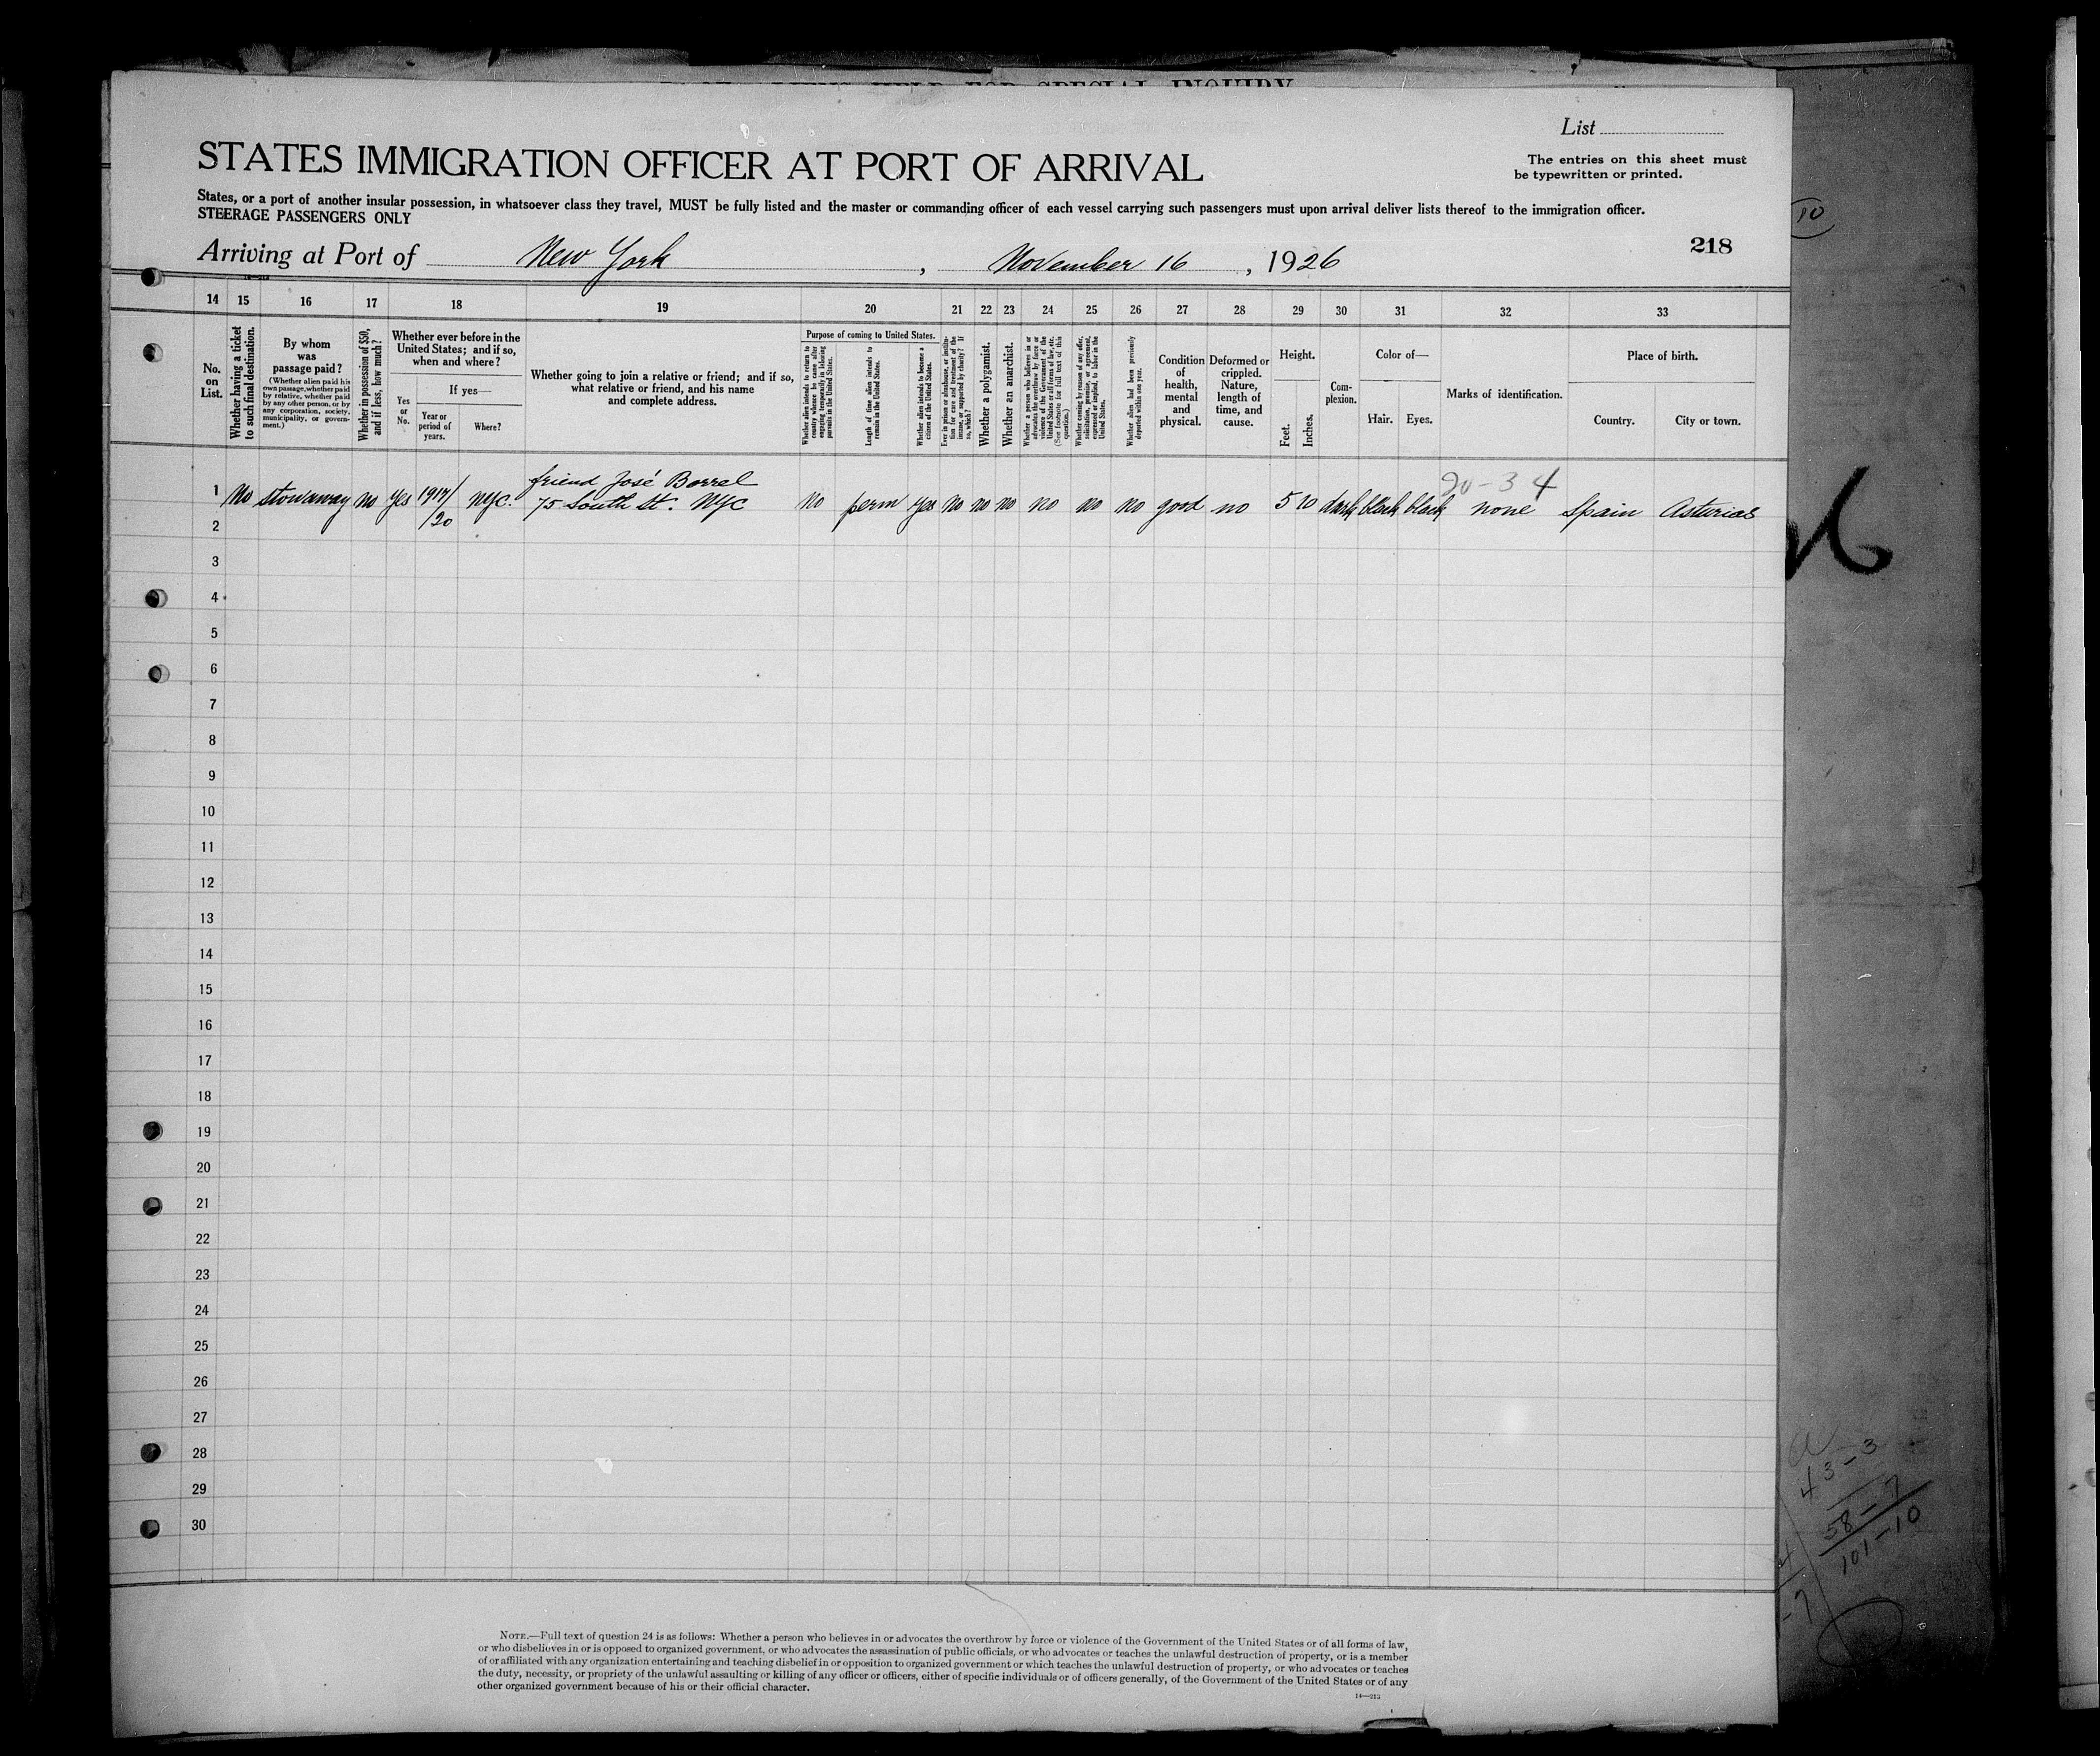 List
STATES IMMIGRATION OFFICER AT PORT OF ARRIVAL
The entries on this sheet must
be typewritten or printed.
States, or a port of another insular possession, in whatsoever class they travel, MUST be fully listed and the master or commanding officer of each vessel carrying such passengers must upon arrival deliver lists thereof to the immigration officer.
STEERAGE PASSENGERS ONLY
10
218
Arriving at Port of New York, November 16, 1926
14 15 16 17 18 19 20 21 22 23 24 25 26 27 28 29 30 31 32 33
No. on List.
Whether having a ticket to such final destination.
By whom was passage paid?
(Whether alien paid his own passage, whether paid by relative, whether paid by any other person, or by any corporation, society, municipality, or government.)
Whether in possession of $50, and if less, how much?
Whether ever before in the United States; and if so, when and where?
If yes—
Yes or No.
Year or period of years.
Where?
Whether going to join a relative or friend; and if so, what relative or friend, and his name and complete address.
Purpose of coming to United States.
Whether alien intends to return to country whence he came after engaging temporarily in laboring pursuits in the United States.
Length of time alien intends to remain in the United States.
Whether alien intends to become a citizen of the United States.
Ever in prison or almshouse, or institution for care and treatment of the insane, or supported by charity? If so, which?
Whether a polygamist.
Whether an anarchist.
Whether a person who believes in or advocates the overthrow by force or violence of the Government of the United States or all forms of law, etc. (See footnote for full text of this question.)
Whether coming by reason of any offer, solicitation, promise, or agreement, expressed or implied, to labor in the United States.
Whether alien had been previously deported within one year.
Condition of health, mental and physical.
Deformed or crippled. Nature, length of time, and cause.
Height.
Feet. Inches.
Complexion.
Color of—
Hair. Eyes.
Marks of identification.
Place of birth.
Country. City or town.
20-34
friend José Borrel
1 No stowaway no yes 1917/ NYC. 75 South St. NYC no perm yes no no no no no no good no 5 10 dark black black none Spain Asturias
2 /20
3
4
5
6
7
8
9
10
11
12
13
14
15
16
17
18
19
20
21
22
23
24
25
26
27
28
29
30
43-3
58-7
101-10
NOTE.—Full text of question 24 is as follows: Whether a person who believes in or advocates the overthrow by force or violence of the Government of the United States or of all forms of law,
or who disbelieves in or is opposed to organized government, or who advocates the assassination of public officials, or who advocates or teaches the unlawful destruction of property, or is a member
of or affiliated with any organization entertaining and teaching disbelief in or opposition to organized government or which teaches the unlawful destruction of property, or who advocates or teaches
the duty, necessity, or propriety of the unlawful assaulting or killing of any officer or officers, either of specific individuals or of officers generally, of the Government of the United States or of any
other organized government because of his or their official character.
14—213